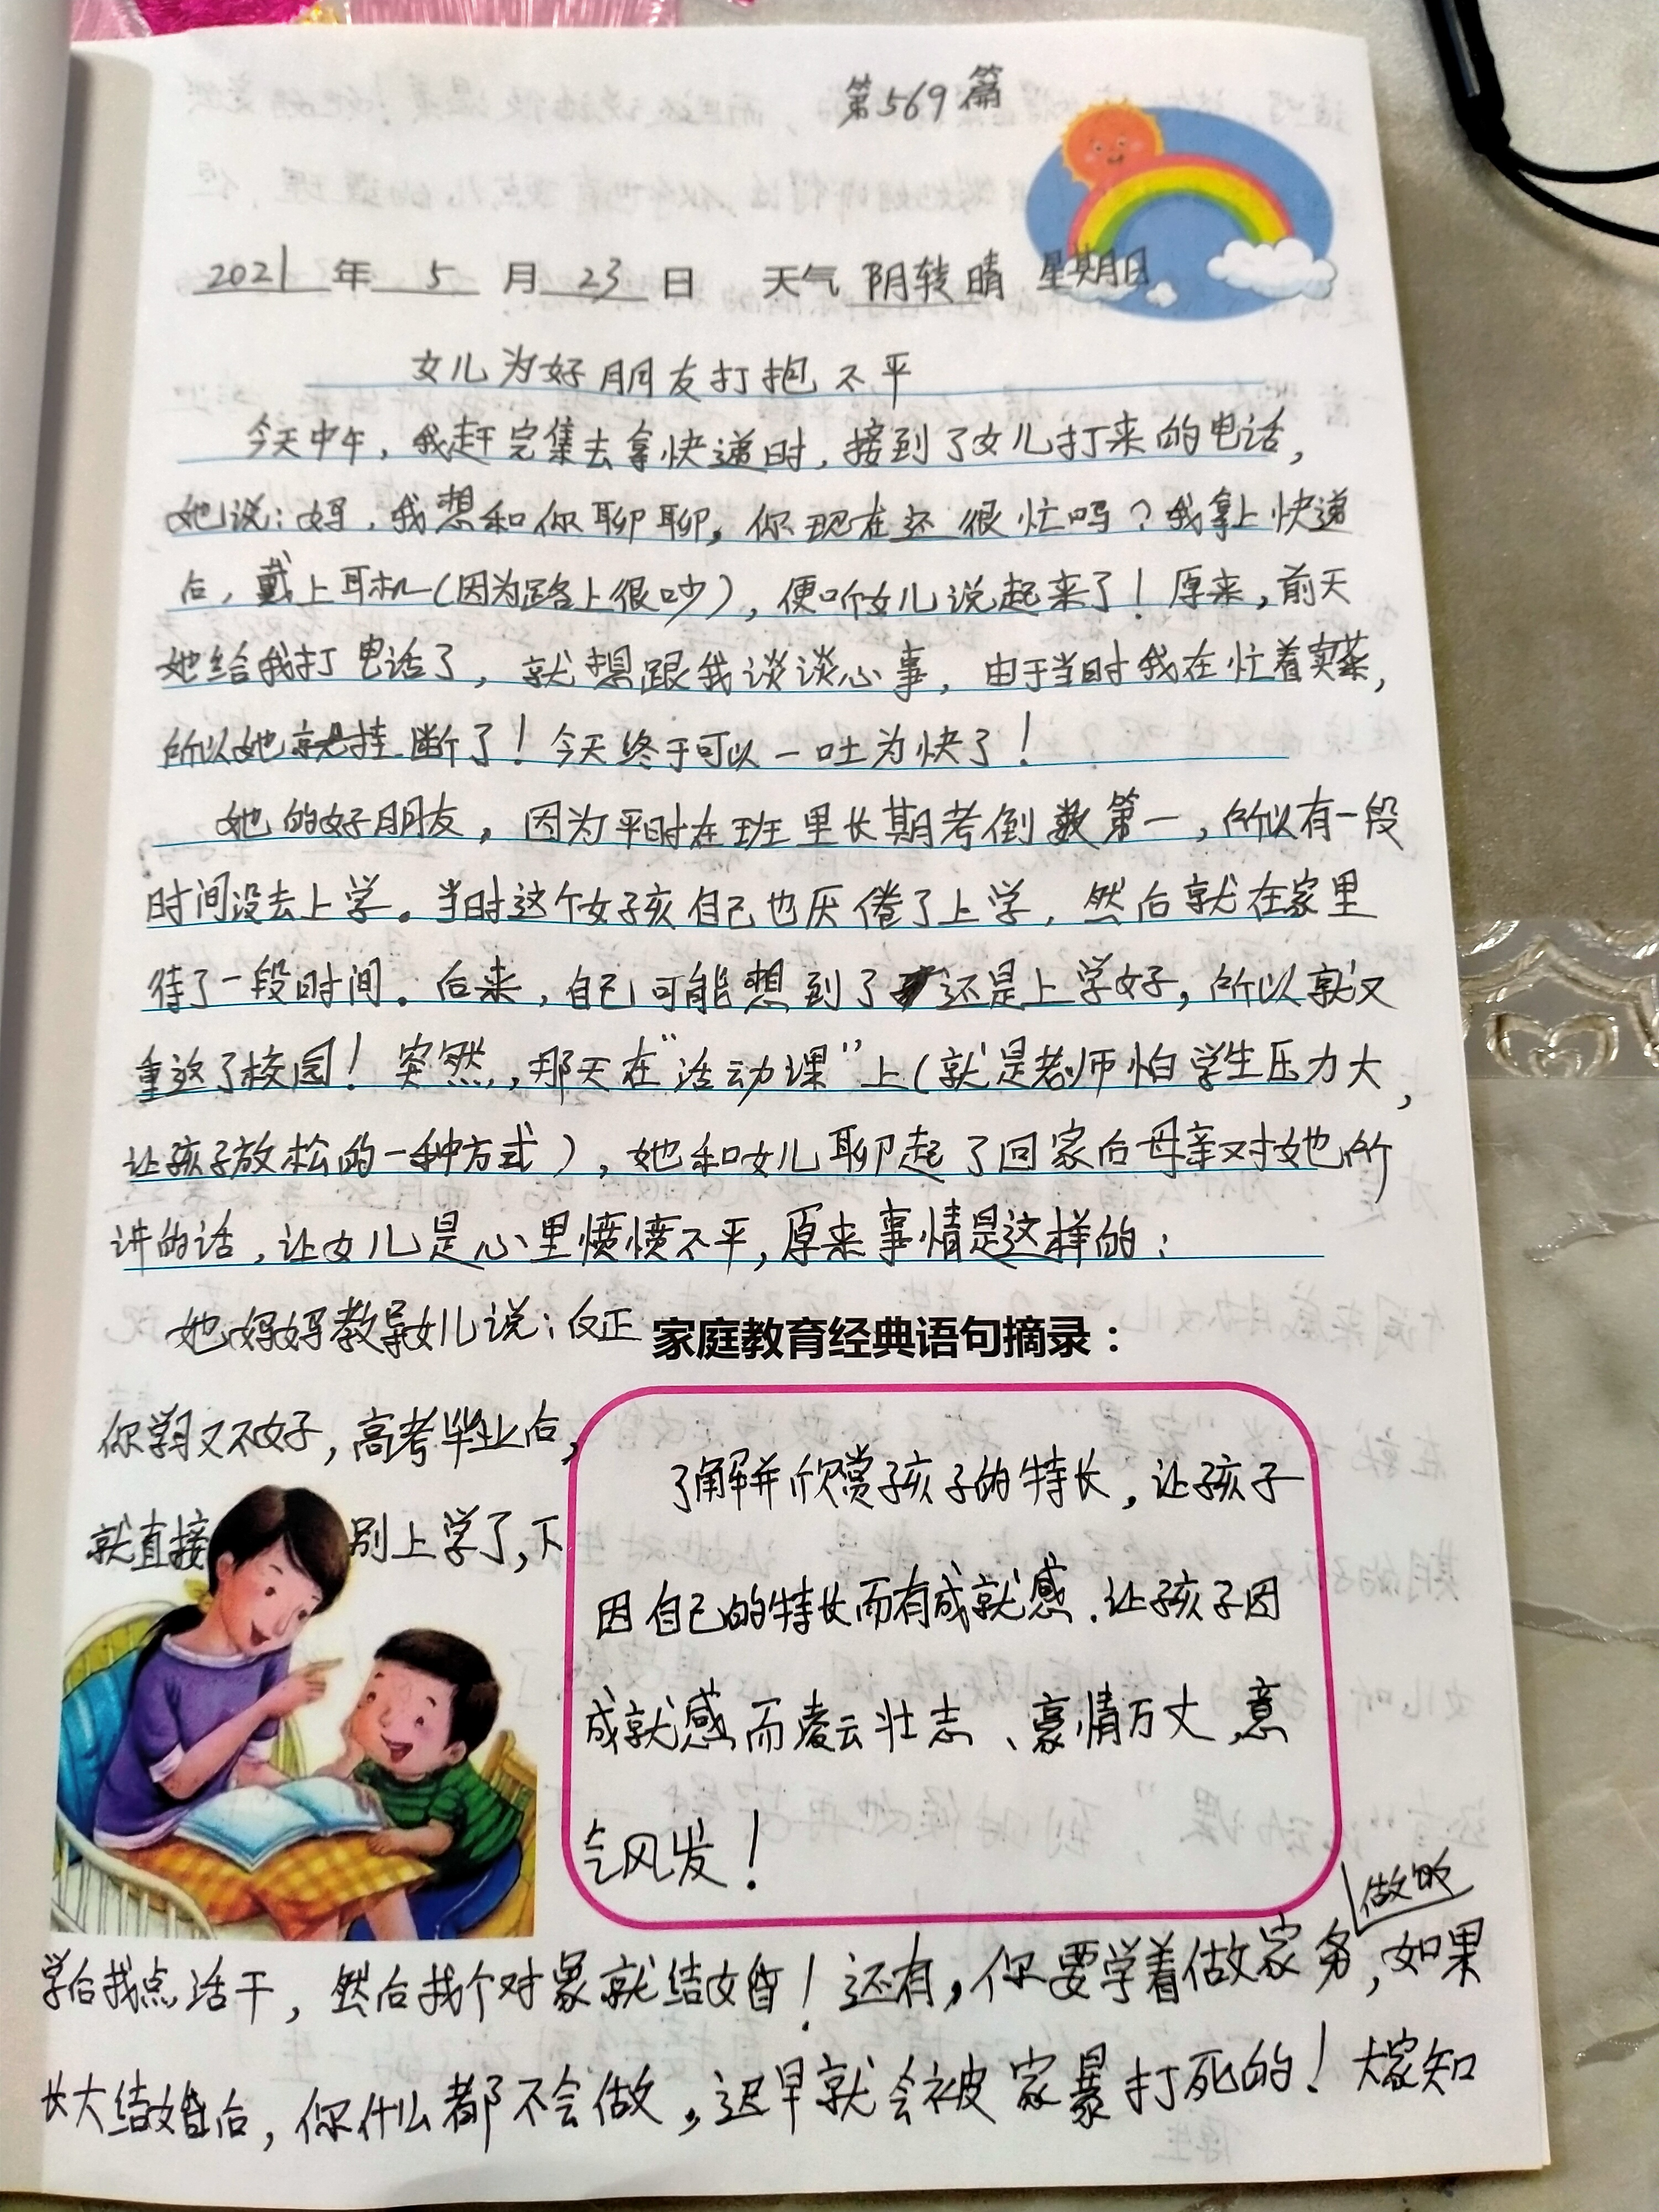 第569篇
2021年5月23日 天气 阴转晴 星期日
女儿为好朋友打抱不平
今天中午,我赶完集去拿快递时,接到了女儿打来的电话,
她说:妈,我想和你聊聊,你现在还很忙吗?我拿上快递
后,戴上耳机(因为路上很吵),便听女儿说起来了!原来,前天
她给我打电话了,就想跟我谈谈心事,由于当时我在忙着卖菜,
所以她就挂断了!今天终于可以一吐为快了!
她的好朋友,因为平时在班里长期考倒数第一,所以有一段
时间没去上学。当时这个女孩自己也厌倦了上学,然后就在家里
待了一段时间。后来,自己可能想到了还是上学好,所以就又
重返了校园!突然,那天在“活动课”上(就是老师怕学生压力大,
让孩子放松的一种方式),她和女儿聊起了回家后母亲对她所
讲的话,让女儿是心里愤愤不平,原来事情是这样的:
她妈妈教导女儿说:反正
家庭教育经典语句摘录:
你学习又不好,高考毕业后,
就直接别上学了,下
了解并欣赏孩子的特长,让孩子
因自己的特长而有成就感.让孩子因
成就感而凌云壮志、豪情万丈,意
气风发!
做的
学后找点活干,然后找个对象就结婚!还有,你要学着做家务,如果
长大结婚后,你什么都不会做,迟早就会被家暴打死的!大家知